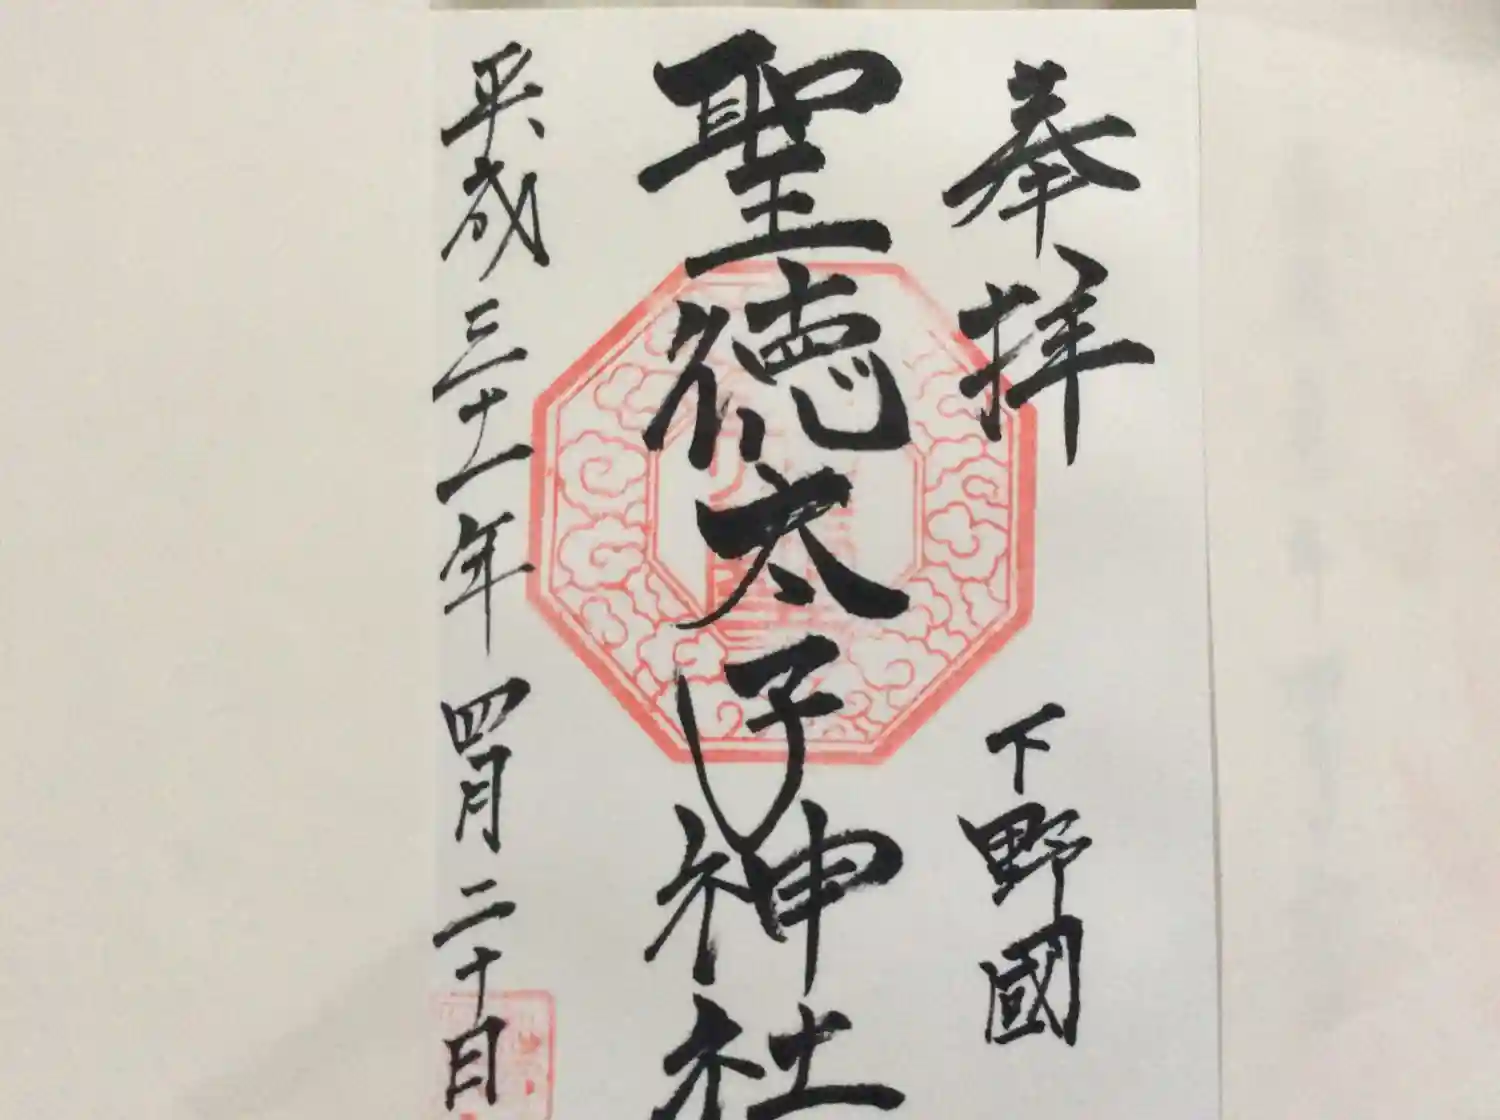 奉拝　下野國
聖徳太子神社
平成三十一年四月二十日